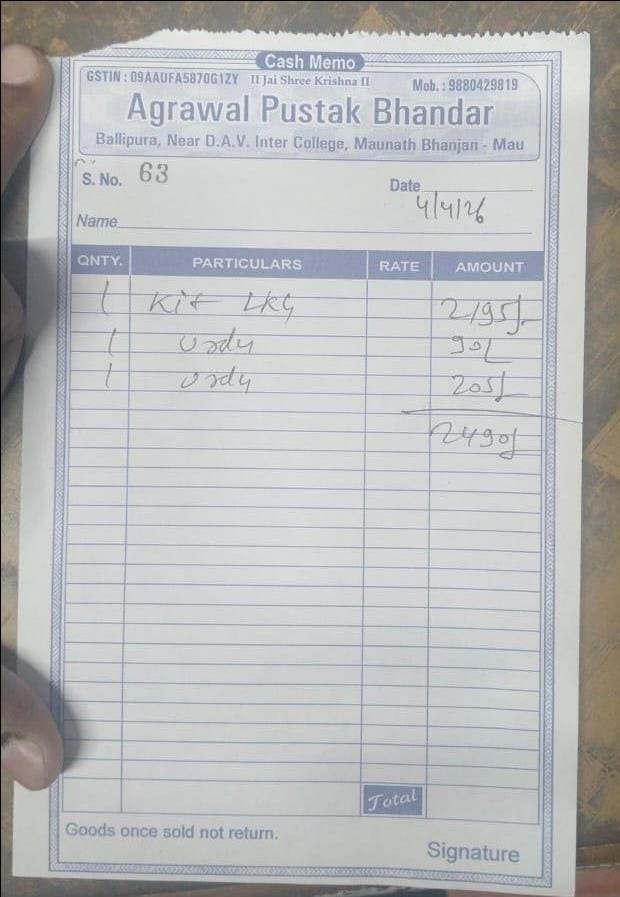 Cash Memo
GSTIN : 09AAUFA5870G1ZY II Jai Shree Krishna II Mob. : 9880429819
Agrawal Pustak Bhandar
Ballipura, Near D.A.V. Inter College, Maunath Bhanjan - Mau
S. No. 63
Date 4/4/26
Name
QNTY. PARTICULARS RATE AMOUNT
1 Kit LKG 2195/-
1 Urdu 90/-
1 Urdu 205/-
2490/-
Total
Goods once sold not return.
Signature